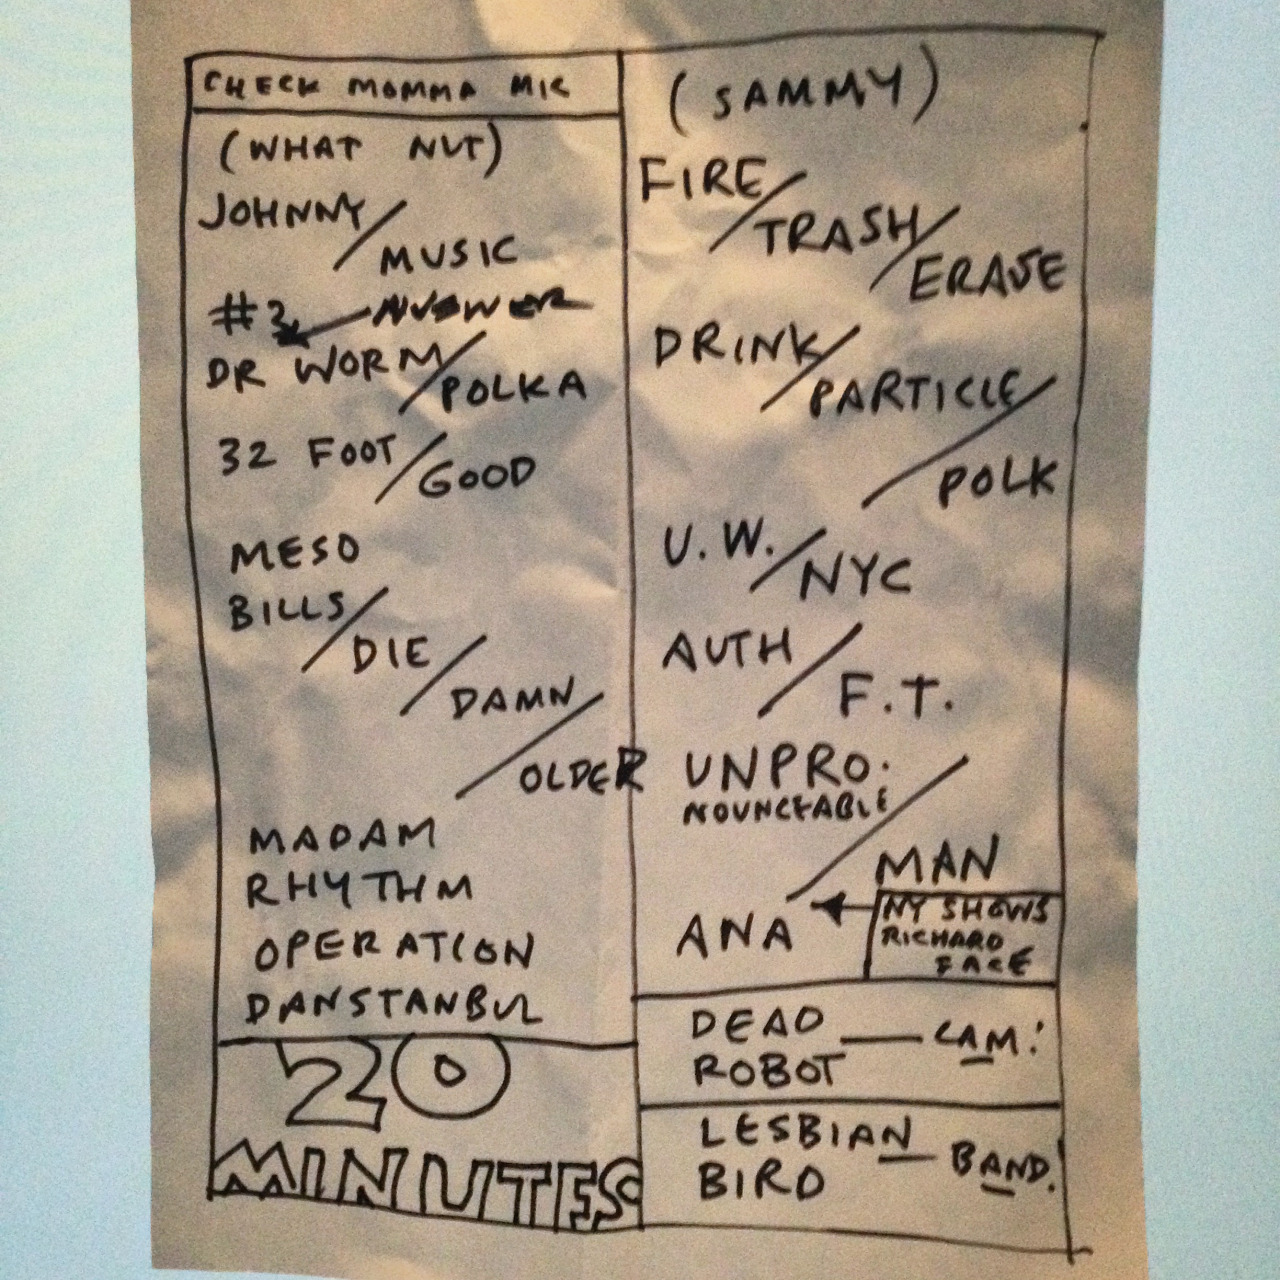 CHECK MOMMA MIC
(WHAT NUT)
JOHNNY/
MUSIC
#3
DR WORM/
POLKA
32 FOOT/
GOOD
MESO
BILLS/
DIE/
DAMN/
OLDER
MADAM
RHYTHM
OPERATION
DANSTANBUL
20
MINUTES
(SAMMY)
FIRE/
TRASH/
ERASE
DRINK/
PARTICLE/
POLK
U.W./
NYC
AUTH/
F.T.
UNPRO.
NOUNCEABLE/
MAN
ANA
NY SHOWS
RICHARD
FACE
DEAD
ROBOT — CAM!
LESBIAN
BIRD — BAND!